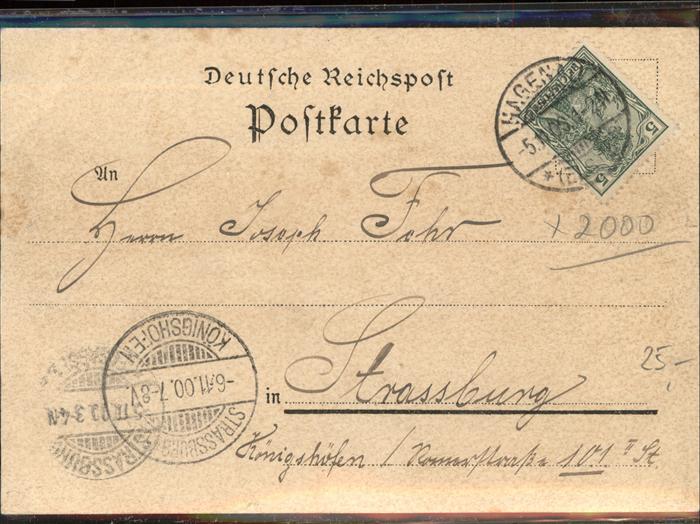 Deutsche Reichspost
Postkarte
An
Herrn Joseph Fohr
x 2000
25,-
in Strassburg
Königshofen / Römerstraße 101 II St
HAGENAU
5
5
KÖNIGSHOFEN
-6.11.00.7-8V.
STRASSBURG
3-4N
STRASSBURG